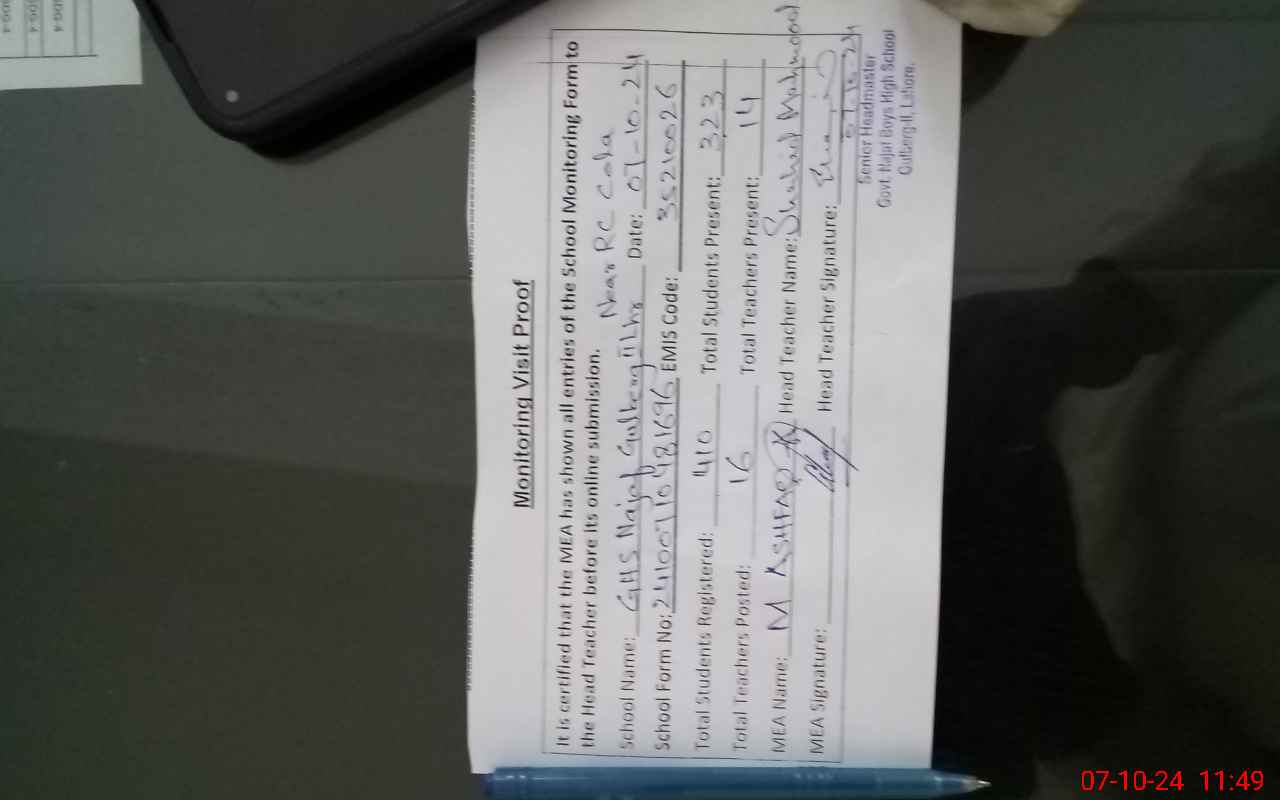 Monitoring Visit Proof
It is certified that the MEA has shown all entries of the School Monitoring Form to
the Head Teacher before its online submission.
Near RC Cola
School Name: GHS Najaf Gulberg II Lhr Date: 07-10-24
School Form No: 241007110481696 EMIS Code: 35210026
Total Students Registered: 410 Total Students Present: 323
Total Teachers Posted: 16 Total Teachers Present: 14
MEA Name: M ASHFAQ Head Teacher Name: Shahid Mahmood
MEA Signature: Head Teacher Signature:
07-10-24
Senior Headmaster
Govt. Najaf Boys High School
Gulberg-II, Lahore.
DG-4
DG-4
DG-4
07-10-24 11:49